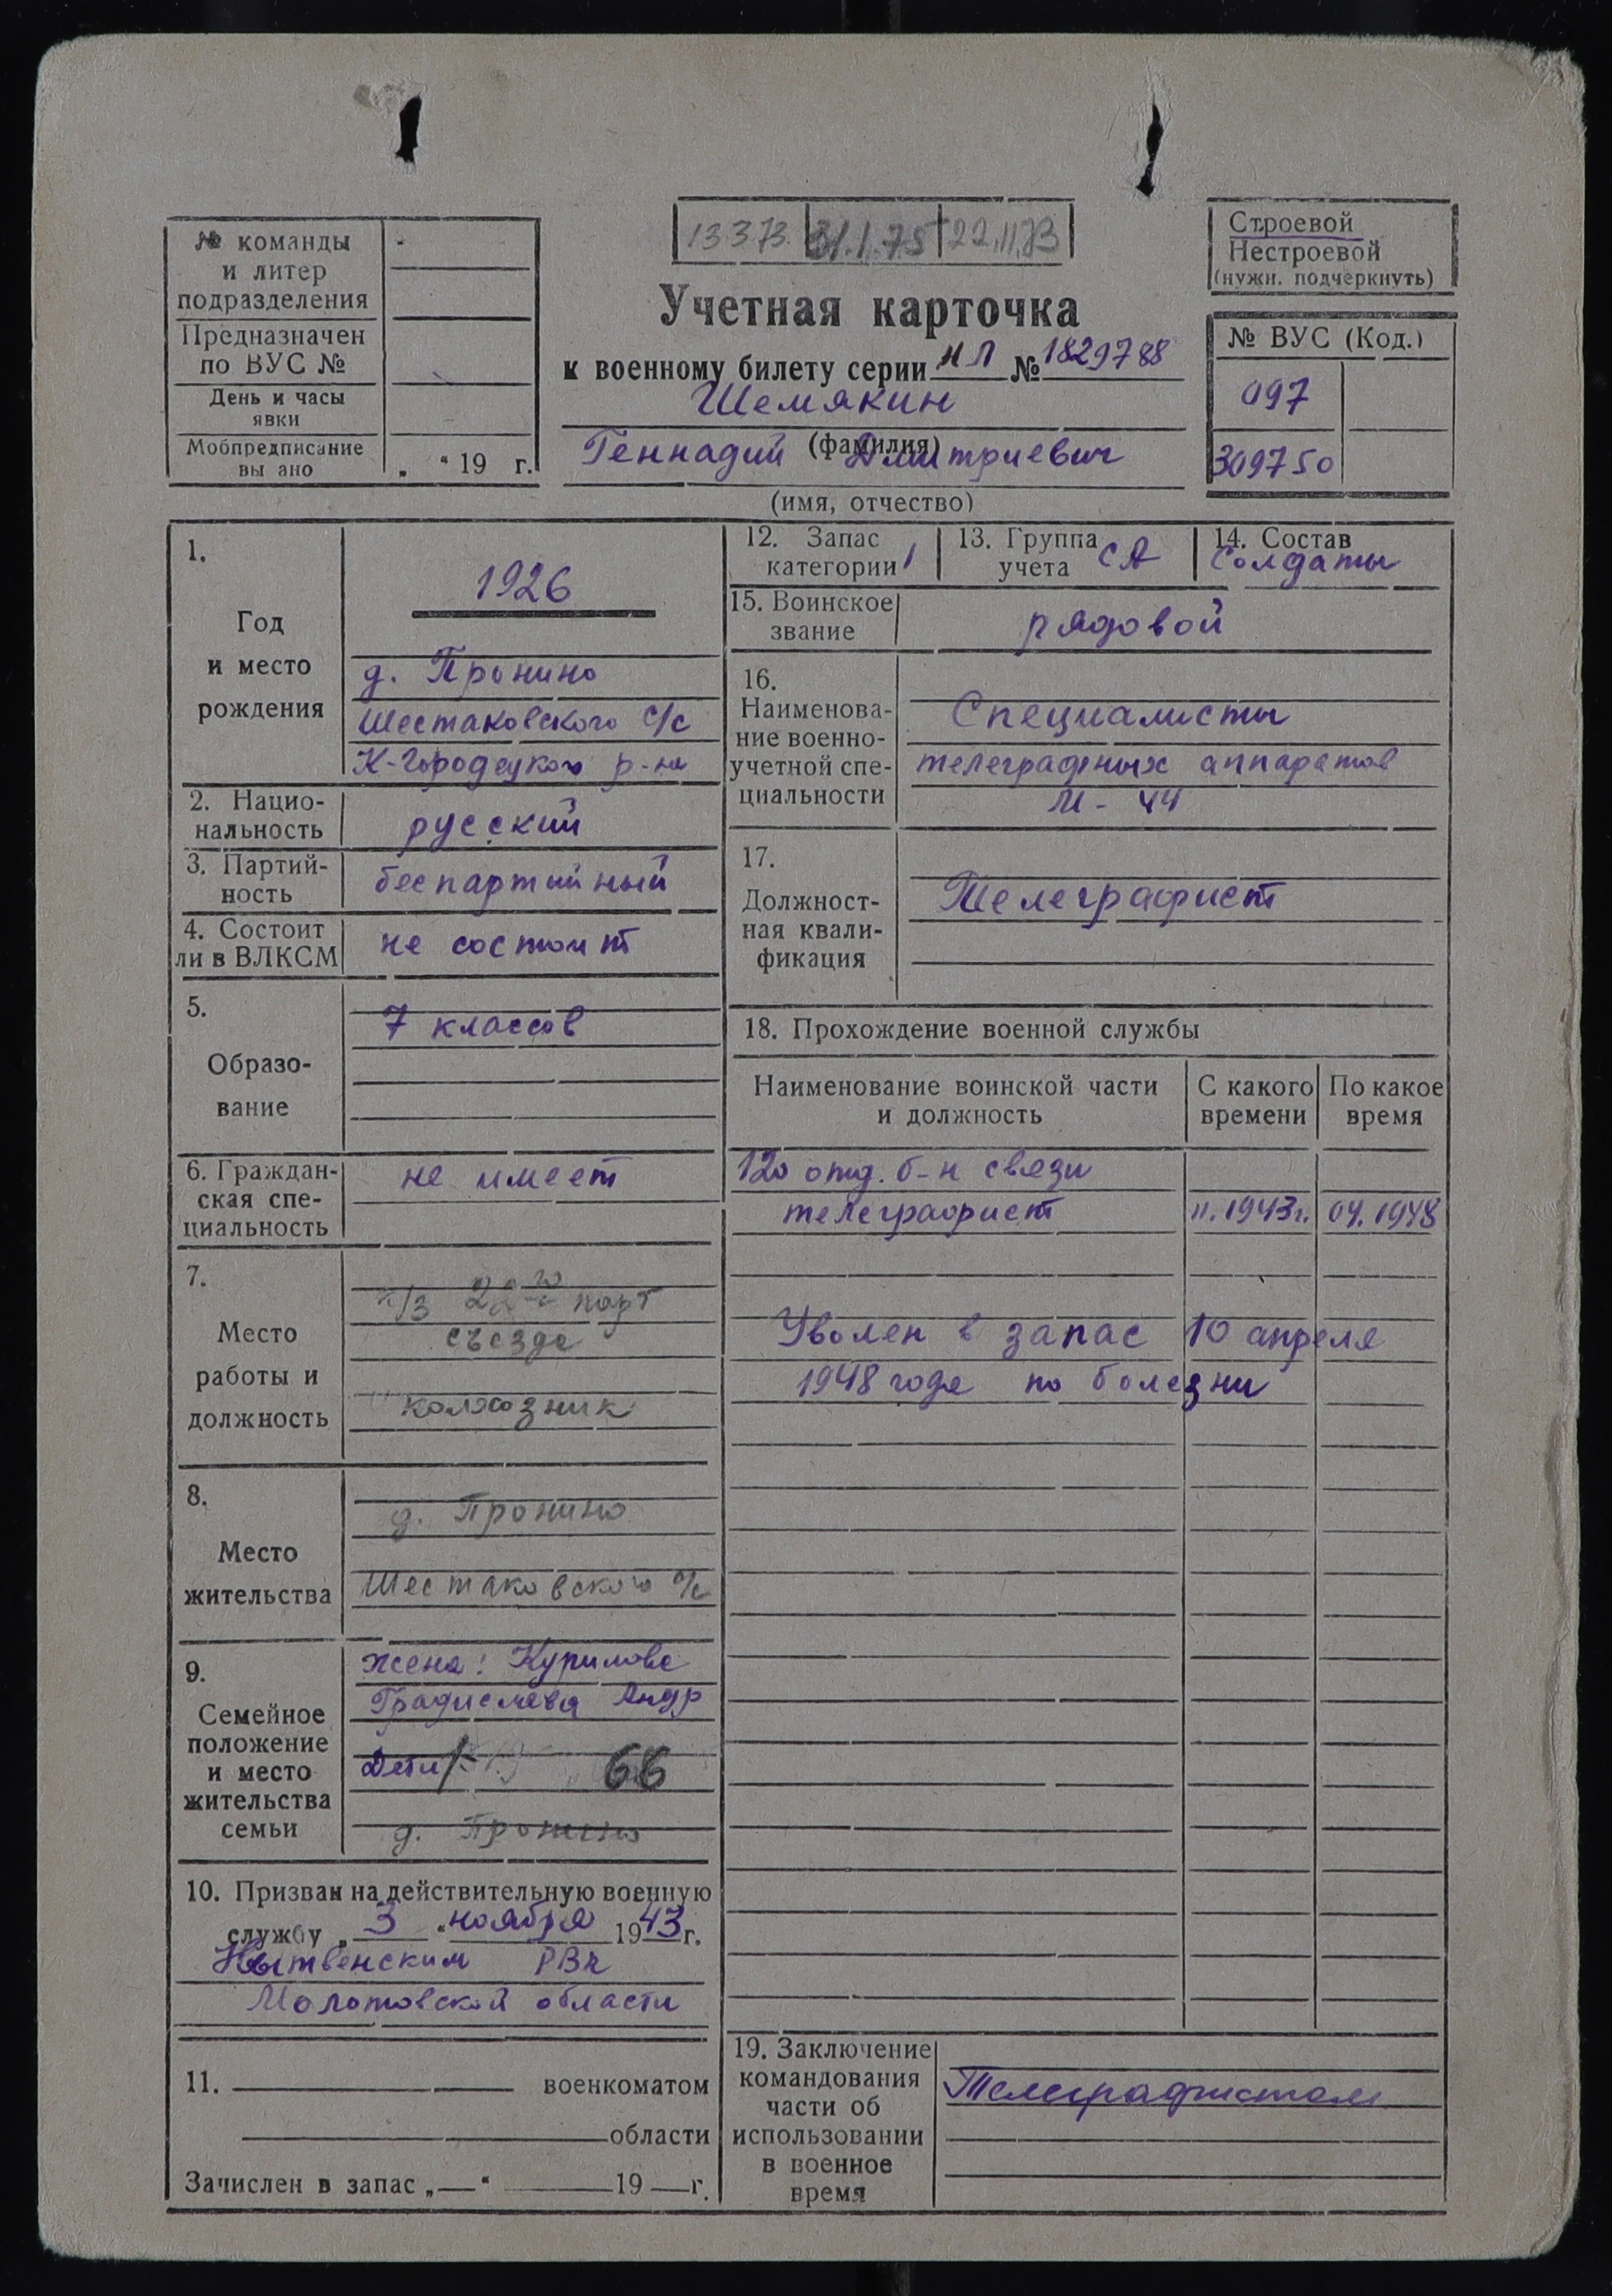 13.3.73. 31.1.75 22.11.73
№ команды
и литер
подразделения
Предназначен
по ВУС №
День и часы
явки
Мобпредписание
вы ано „ “ 19 г.
Учетная карточка
к военному билету серии НЛ № 1829788
Шемякин
(фамилия)
Геннадий Дмитриевич
(имя, отчество)
Строевой
Нестроевой
(нужн. подчеркнуть)
№ ВУС (Код.)
097
309750
1.
Год
и место
рождения
1926
д. Пронино
Шестаковского с/с
К-Городецкого р-на
2. Нацио-
нальность
русский
3. Партий-
ность
беспартийный
4. Состоит
ли в ВЛКСМ
не состоит
5.
Образо-
вание
7 классов
6. Граждан-
ская спе-
циальность
не имеет
7.
Место
работы и
должность
парт
съезда
колхозник
8.
Место
жительства
д. Пронино
Шестаковского с/с
9.
Семейное
положение
и место
жительства
семьи
жена: Курилова
Градислава Андр
Дети 66
д. Пронино
10. Призван на действительную военную
службу „ 3 “ ноября 1943 г.
Нытвенским РВК
Молотовской области
11. военкоматом
области
Зачислен в запас „ “ 19 г.
12. Запас
категории 1
13. Группа
учета СА
14. Состав
солдаты
15. Воинское
звание
рядовой
16.
Наименова-
ние военно-
учетной спе-
циальности
Специалисты
телеграфных аппаратов
М-44
17.
Должност-
ная квали-
фикация
Телеграфист
18. Прохождение военной службы
Наименование воинской части
и должность
С какого
времени
По какое
время
120 отд. б-н связи
телеграфист 11.1943г. 04.1948
Уволен в запас 10 апреля
1948 года по болезни
19. Заключение
командования
части об
использовании
в военное
время
Телеграфистом